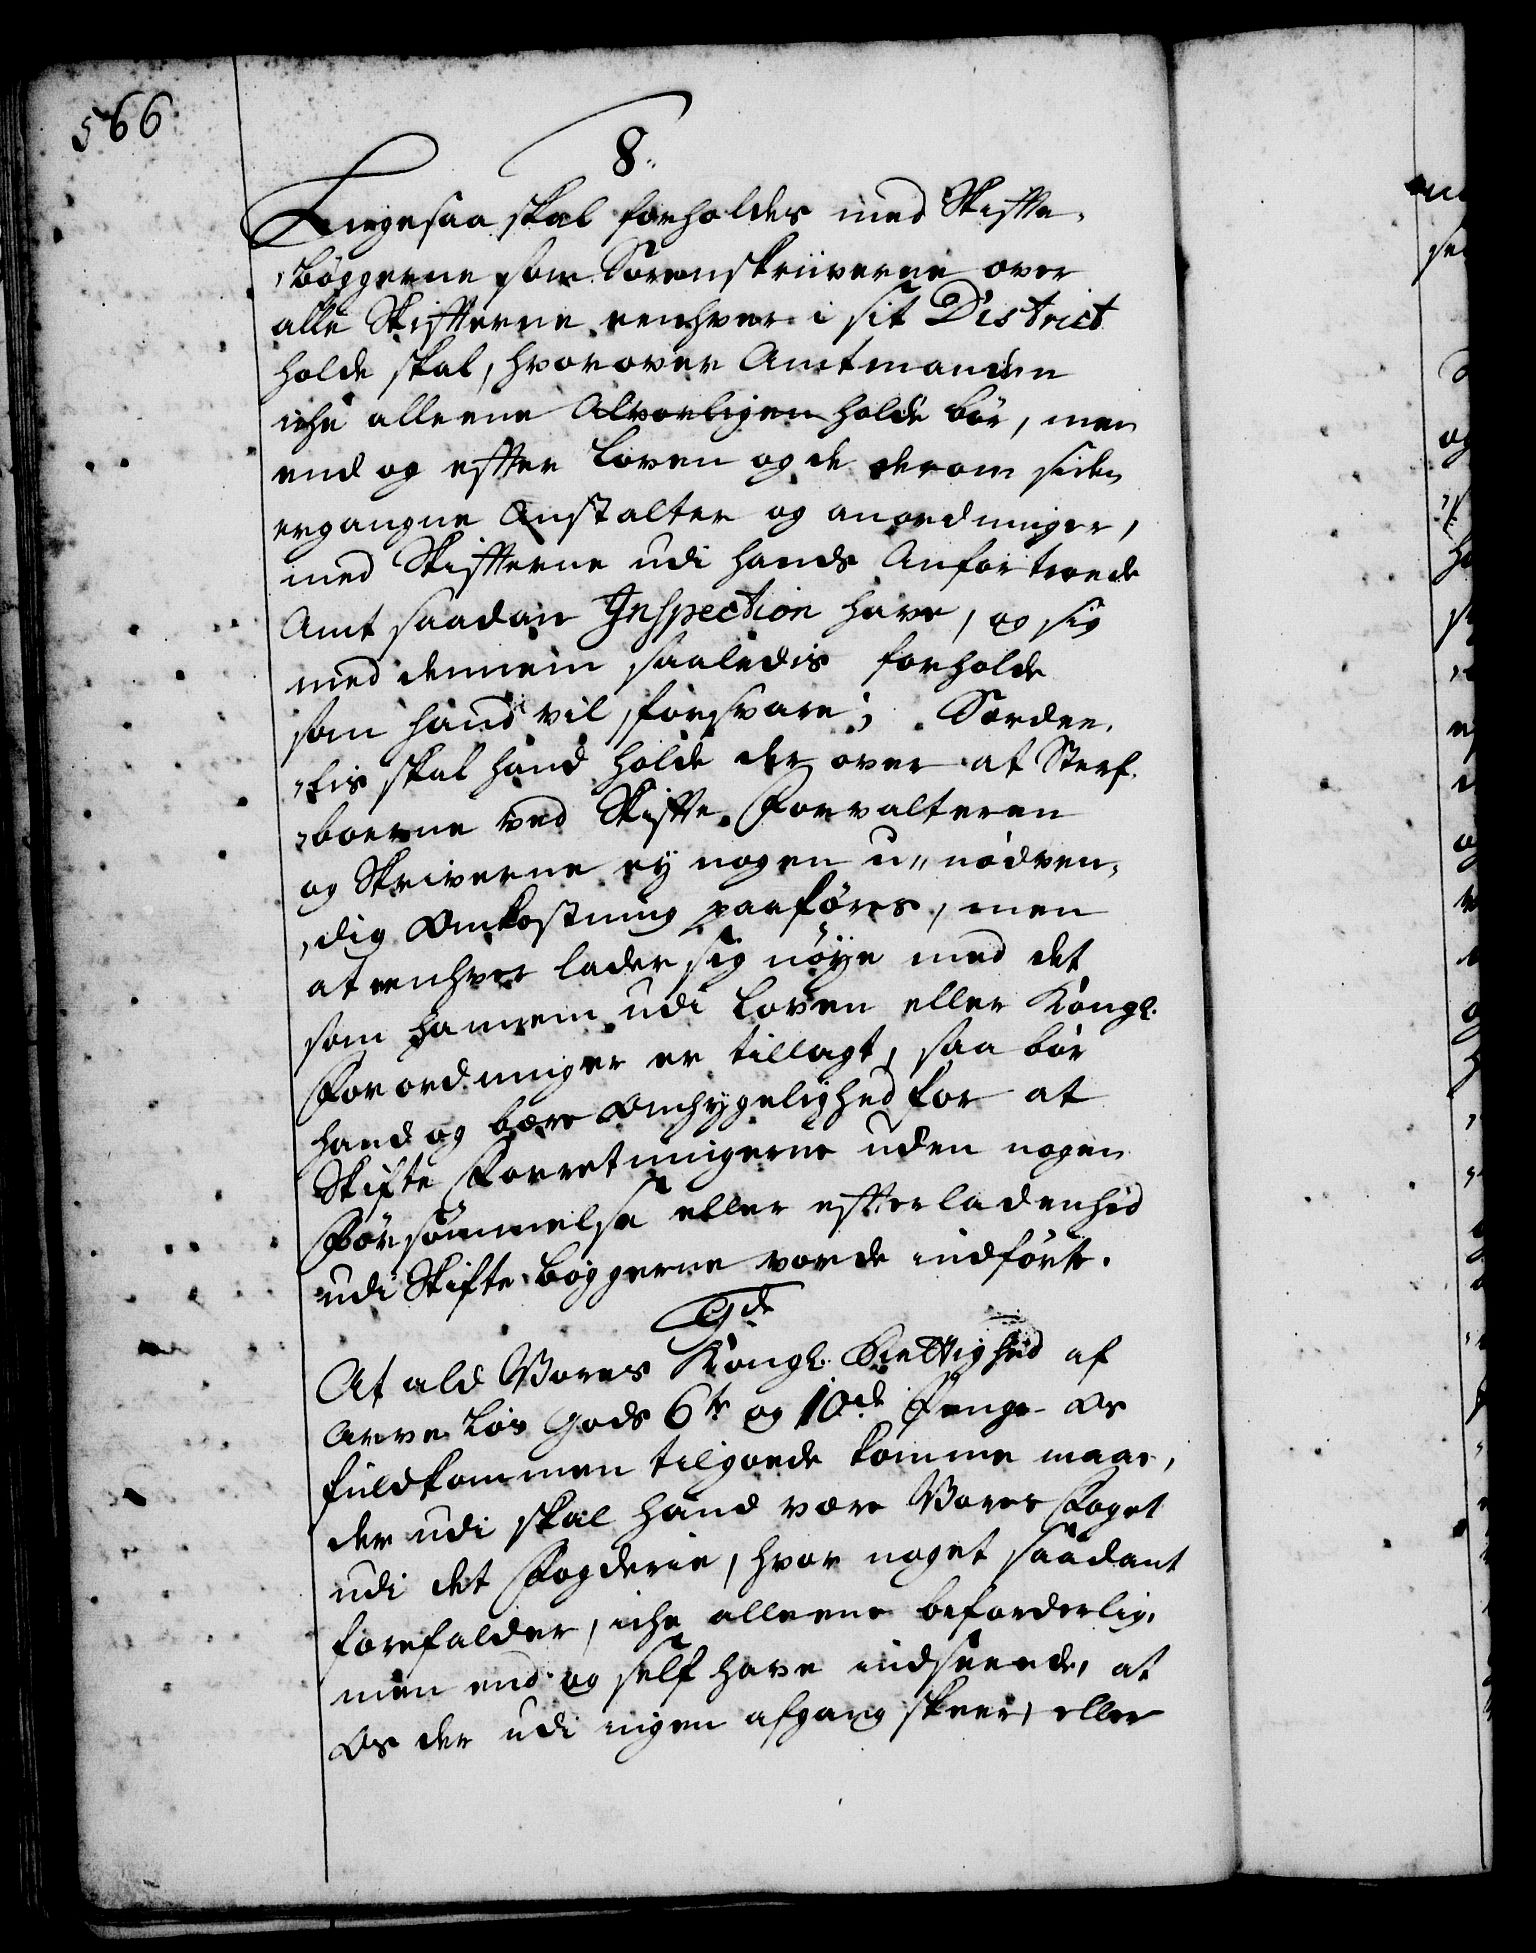 566
8.
Liigesaa skal forholdes med Skifte-
bøggerne som Sorenskriiverne over
alle Skifterne eenhver i sit District
holde skal, hvorover Amtmanden
iche alleene Alvorligen holde bør, men
end og efter Loven og de derom siden
ergangne Anstalter og anordninger,
med Skifterne udi hands Anfortroede
Amt saadan Inspection have, og sig
med dennem saaledis forholde
som hand vil forsvare; Særdee-
lis skal hand holde der over at Sterf-
boerne ved Skifte Forvalteren
og Skriverne ey nogen u-nødven-
dig Omkostning paaføres, men
at eenhver lader sig nøye med det
som hannem udi Loven eller Kongl.
Forordninger er tillagt, saa bør
hand og bære Omhyggelighed for at
Skifte Forretningerne uden nogen
Forsømmelse eller efterladenhed
udi Skifte bøggerne vorde indført.
9de
At ald Vores Kongl. Rettighed af
Arve løs Gods 6te og 10de Penge Os
fuldkommen tilgoede komme maae,
der udi skal hand være Vores Foget
udi det Fogderie, hvor noget saadant
forefalder, iche alleene beforderlig,
men end og self have indseende, at
Os der udi ingen afgang skeer, eller